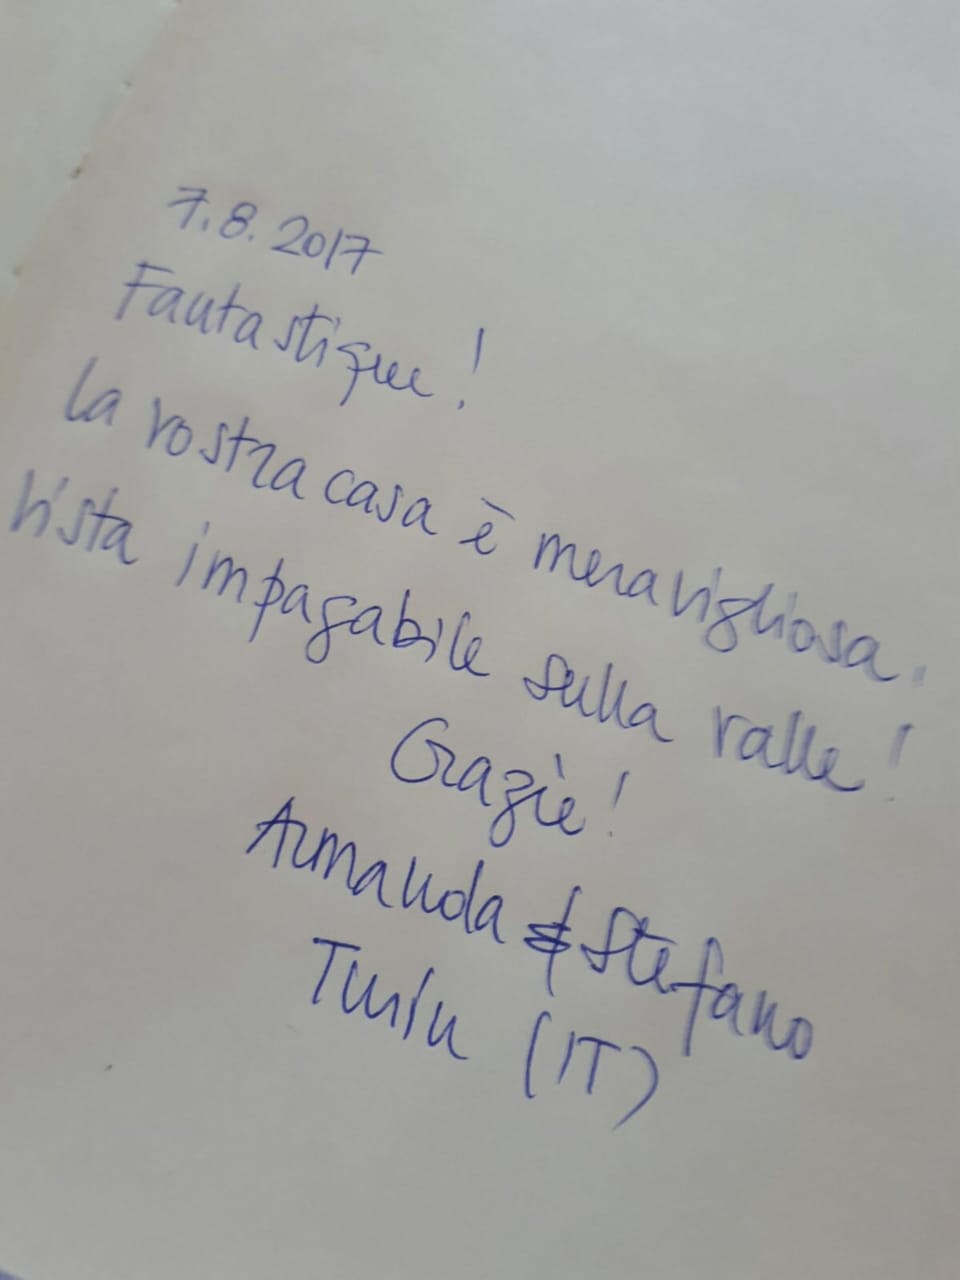 7.8.2017
Fantastique!
La vostra casa è meravigliosa.
Vista impagabile sulla valle!
Grazie!
Armanda & Stefano
Turin (IT)